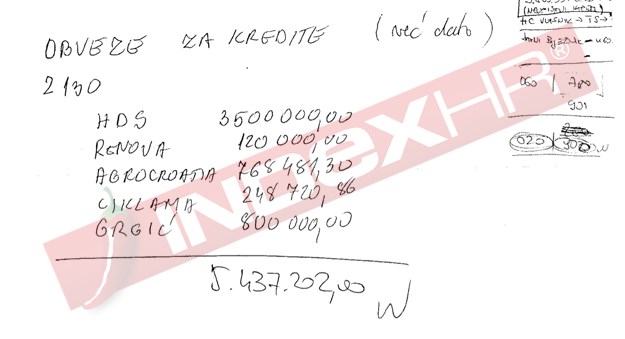 OBVEZE ZA KREDITE (već dato)
2130
HDS 3500 000,00
RENOVA 120 000,00
AGROCROATIA 768 481,30
CIKLAMA 248 720,86
GRGIĆ 800 000,00
5.437.202,00
INDEXHR
HC VUKSNIK → TS →
060 700
901
020 300